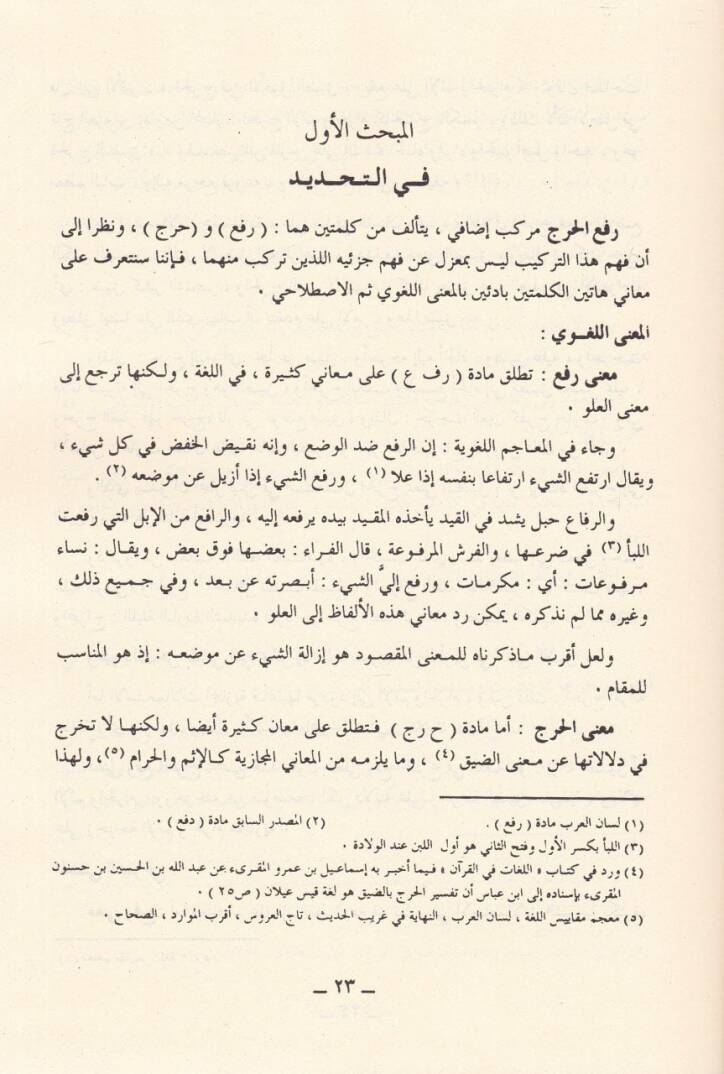 المبحث الأول
في التحديد
رفع الحرج مركب إضافي ، يتألف من كلمتين هما : ( رفع ) و ( حرج ) ، ونظرا إلى
أن فهم هذا التركيب ليس بمعزل عن فهم جزئيه اللذين تركب منهما ، فإننا سنتعرف على
معاني هاتين الكلمتين بادئين بالمعنى اللغوي ثم الاصطلاحي .
المعنى اللغوي :
معنى رفع : تطلق مادة ( رف ع ) على معاني كثيرة ، في اللغة ، ولكنها ترجع إلى
معنى العلو .
وجاء في المعاجم اللغوية : إن الرفع ضد الوضع ، وإنه نقيض الخفض في كل شيء ،
ويقال ارتفع الشيء ارتفاعا بنفسه إذا علا (١) ، ورفع الشيء إذا أزيل عن موضعه (٢) .
والرفاع حبل يشد في القيد يأخذه المقيد بيده يرفعه إليه ، والرافع من الإبل التي رفعت
اللبأ (٣) في ضرعها ، والفرش المرفوعة ، قال الفراء : بعضها فوق بعض ، ويقال : نساء
مرفوعات : أي : مكرمات ، ورفع إليَّ الشيء : أبصرته عن بعد ، وفي جميع ذلك ،
وغيره مما لم نذكره ، يمكن رد معاني هذه الألفاظ إلى العلو .
ولعل أقرب ماذكرناه للمعنى المقصود هو إزالة الشيء عن موضعه : إذ هو المناسب
للمقام .
معنى الحرج : أما مادة ( ح رج ) فتطلق على معان كثيرة أيضا ، ولكنها لا تخرج
في دلالاتها عن معنى الضيق (٤) ، وما يلزمه من المعاني المجازية كالإثم والحرام (٥) ، ولهذا
(١) لسان العرب مادة ( رفع ) . (٢) المصدر السابق مادة ( دفع ) .
(٣) اللبأ بكسر الأول وفتح الثاني هو أول اللبن عند الولادة .
(٤) ورد في كتاب « اللغات في القرآن » فيما أخبر به إسماعيل بن عمرو المقرىء عن عبد الله بن الحسين بن حسنون
المقرىء بإسناده إلى ابن عباس أن تفسير الحرج بالضيق هو لغة قيس عيلان ( ص٢٥ ) .
(٥) معجم مقاييس اللغة ، لسان العرب ، النهاية في غريب الحديث ، تاج العروس ، أقرب الموارد ، الصحاح .
ــ ٢٣ ــ